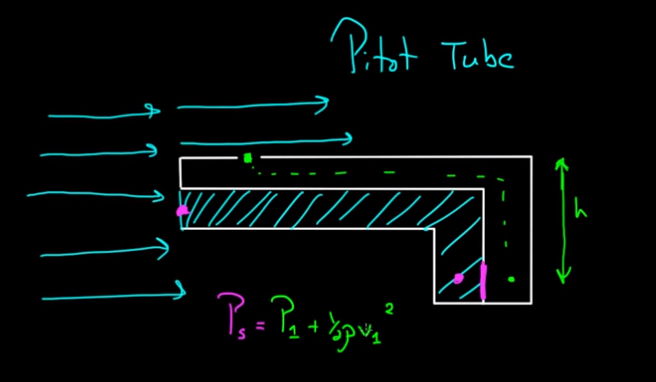 Pitot Tube
h
Ps = P1 + ½ρv1²